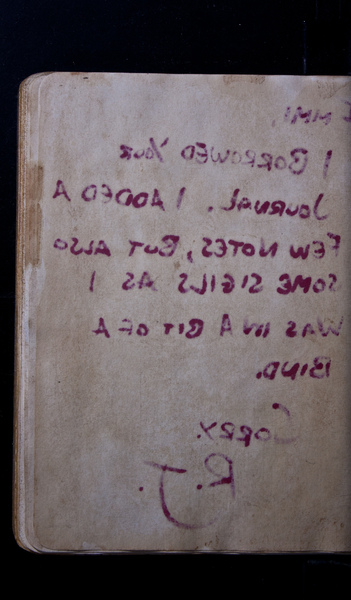 Emmi,
I Borrowed Your
Journal. I added a
few notes, but also
some sigils as I
was in a bit of a
bind.
Corry.
R.J.